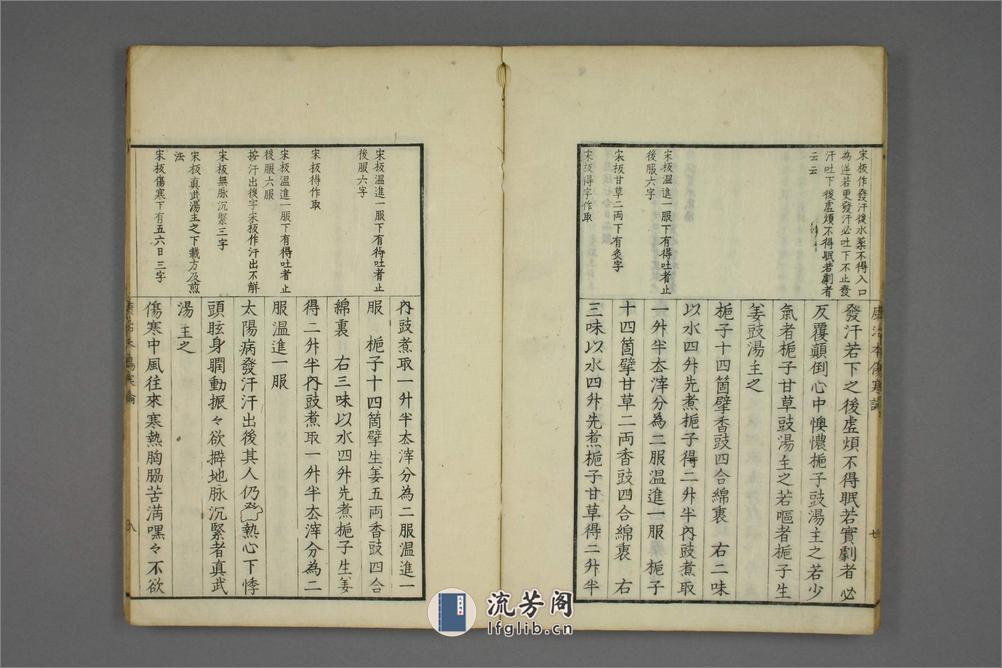 宋板作發汗後水薬不得入口
為逆若更發汗必吐下不止發
汗吐下後虚煩不得眠若劇者
云云
宋板温進一服下有得吐者止
後服六字
宋板甘草二兩下有炙字
宋板得字作取
康治本傷寒論
發汗若下之後虚煩不得眠若實劇者必
反覆顛倒心中懊憹梔子豉湯主之若少
氣者梔子甘草豉湯主之若嘔者梔子生
姜豉湯主之
梔子十四箇擘香豉四合綿裹 右二味
以水四升先煮梔子得二升半内豉煮取
一升半去滓分為二服温進一服 梔子
十四箇擘甘草二兩香豉四合綿裹 右
三味以水四升先煮梔子甘草得二升半
宋板温進一服下有得吐者止
後服六字
宋板得作取
宋板温進一服下有得吐者止
後服六服
按汗出後字宋板作汗出不解
宋板無脉沉緊三字
宋板真武湯主之下載方及煎
法
宋板傷寒下有五六日三字
内豉煮取一升半去滓分為二服温進一
服 梔子十四箇擘生姜五両香豉四合
綿裹 右三味以水四升先煮梔子生姜
得二升半内豉煮取一升半去滓分為二
服温進一服
太陽病發汗汗出後其人仍發熱心下悸
頭眩身瞤動振々欲擗地脉沉緊者真武
湯主之
傷寒中風往來寒熱胸脇苦満嘿々不欲
八
流芳阁
lfglib.cn